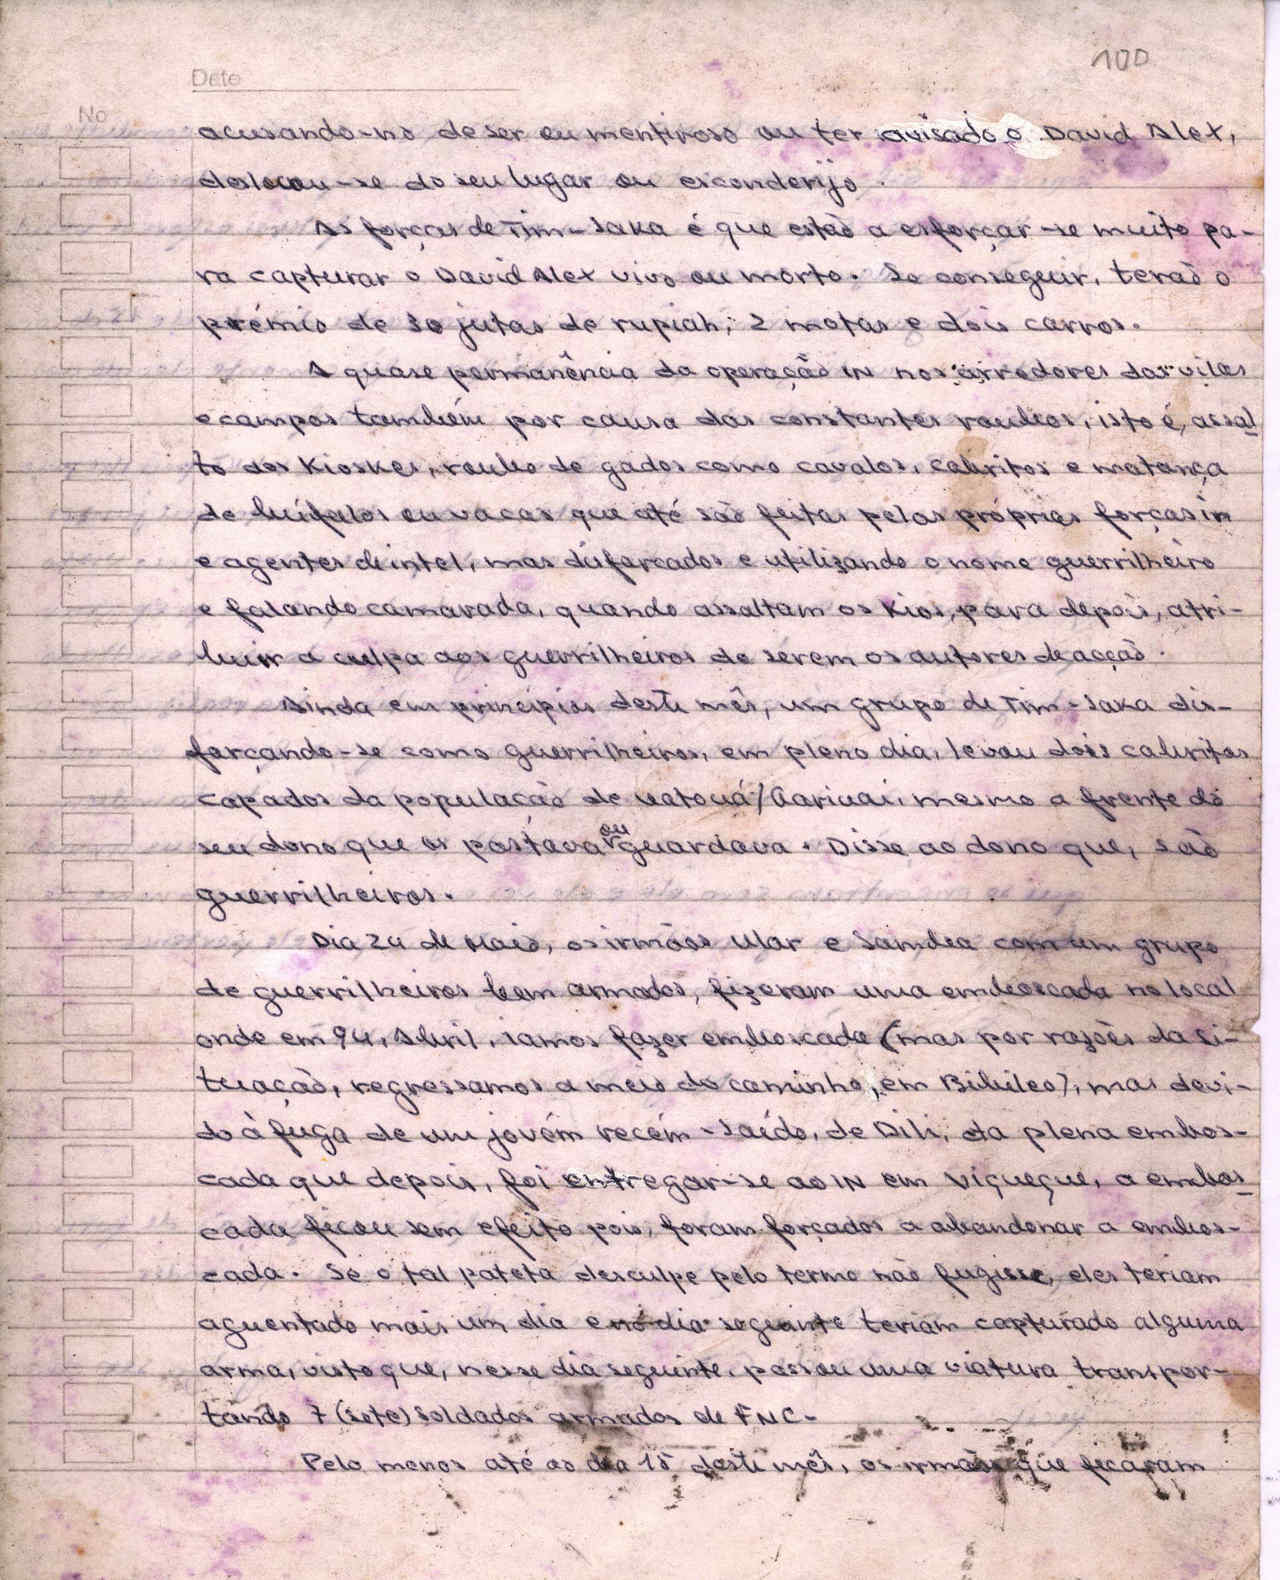 100
Date
No
acusando-no de ser eu mentiroso ou ter avisado o David Alex,
deslocou-se do seu lugar ou esconderijo.
As forças de Tim-Saka é que estão a esforçar-se muito pa-
ra capturar o David Alex vivo ou morto. Se conseguir, terão o
prémio de 30 jutas de rupiah, 2 motas e dois carros.
A quase permanência da operação IN nos arredores das vilas
e campos também por causa dos constantes roubos, isto é, assal
to dos Kioskes, roubo de gados como cavalos, cabritos e matança
de búfalos ou vacas que até são feitas pelas próprias forças in
e agentes de intel, mas disfarcados e utilizando o nome guerrilheiro
e falando camarada, quando assaltam os Kios, para depois, atri-
buir a culpa aos guerrilheiros de serem os autores de acção.
Ainda em princípios deste mês, um grupo de Tim-Saka dis-
farçando-se como guerrilheiros, em pleno dia, levou dois cabritos
capados da população de Uatouá/Gariuai, mesmo a frente do
seu dono que os pastava ou guardava. Disse ao dono que, são
guerrilheiros.
Dia 24 de Maio, os irmãos Ular e Samba com um grupo
de guerrilheiros bem armados, fizeram uma emboscada no local
onde em 94, Abril, iamos fazer emboscada (mas por razões da si-
tuação, regressamos a meio do caminho, em Bibileo), mas devi-
do à fuga de um jovém recém-saído, de Dili, da plena embos-
cada que depois, foi entregar-se ao IN em Viqueque, a embos
cada ficou sem efeito pois, foram forçados a abandonar a embos-
cada. Se o tal pateta desculpe pelo termo não fugisse, eles teriam
aguentado mais um dia e no dia seguinte teriam capturado alguma
arma, visto que, nesse dia seguinte, passou uma viatura transpor-
tando 7 (sete) soldados armados de FNC.
Pelo menos até ao dia 15 deste mês, os irmãos que ficaram